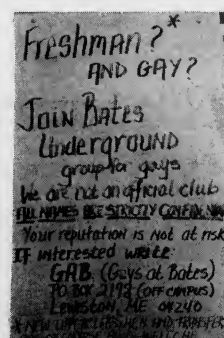 Freshman?*
AND GAY?
JOIN BATES
Underground
group for gays
We are not an official club
ALL NAMES ARE STRICTLY
Your reputation is not at risk
IF interested write:
GAB (Gays at Bates)
PO BOX 2192 (OFF CAMPUS)
Lewiston, ME 04240
*NEW UPPERCLASSMEN AND TRANSFER